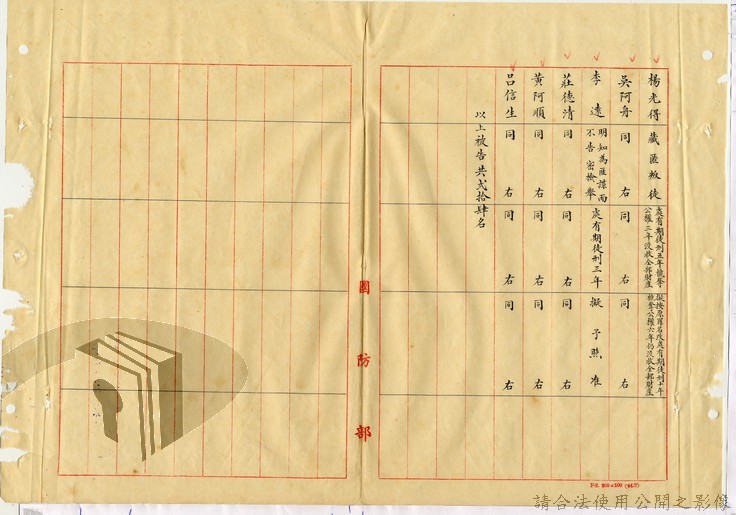 楊光得 藏匿叛徒 處有期徒刑五年褫奪公權三年沒收全部財產 擬按原罪名改處有期徒刑十年褫奪公權六年仍沒收全部財產
吳阿舟 同右 同右 同右
李遠 明知為匪諜而不告密檢舉 處有期徒刑三年 擬予照准
莊德清 同右 同右 同右
黃阿順 同右 同右 同右
呂信生 同右 同右 同右
以上被告共貳拾肆名
國防部
請合法使用公開之影像